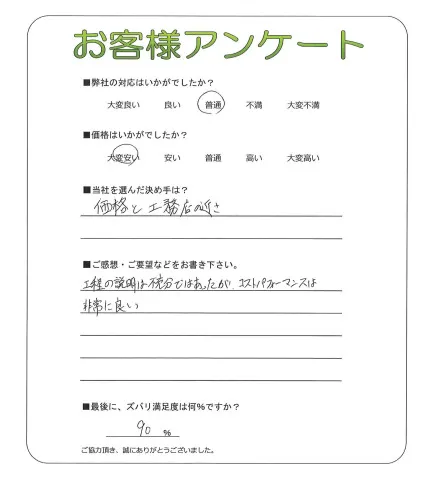 お客様アンケート
■弊社の対応はいかがでしたか？
大変良い 良い 普通 不満 大変不満
■価格はいかがでしたか？
大変安い 安い 普通 高い 大変高い
■当社を選んだ決め手は？
価格と工務店の近さ
■ご感想・ご要望などをお書き下さい。
工程の説明は不充分ではあったが、コストパフォーマンスは
非常に良い
■最後に、ズバリ満足度は何％ですか？
90 %
ご協力頂き、誠にありがとうございました。